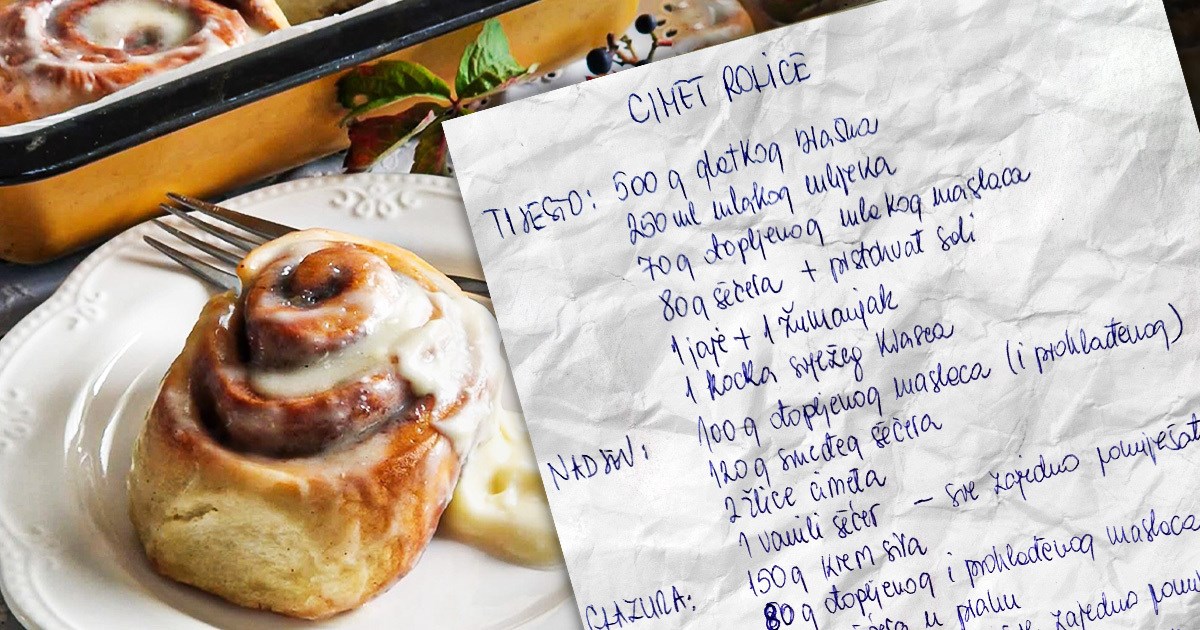 CIMET ROLICE
TIJESTO: 500 g glatkog brašna
250 ml mlakog mlijeka
70g otopljenog mlakog maslaca
80g šećera + prstohvat soli
1 jaje + 1 žumanjak
1 kocka svježeg kvasca
NADJEV: 100g otopljenog maslaca (i prohlađenog)
120g smeđeg šećera
2 žlice cimeta
1 vanili šećer - sve zajedno pomiješat
GLAZURA: 150g krem sira
80g otopljenog i prohlađenog maslaca
šećera u prahu
zajedno pomi